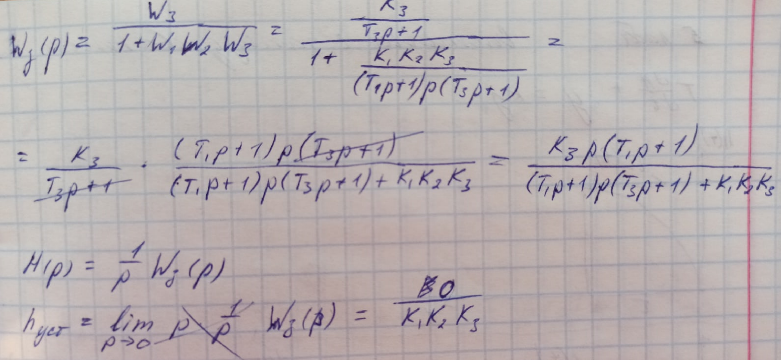 W_з(p) = W₃ / (1 + W₁ W₂ W₃) = (K₃ / (T₃p+1)) / (1 + K₁K₂K₃ / ((T₁p+1)p(T₃p+1))) =
= K₃ / (T₃p+1) · (T₁p+1)p(T₃p+1) / ((T₁p+1)p(T₃p+1) + K₁K₂K₃) = K₃p(T₁p+1) / ((T₁p+1)p(T₃p+1) + K₁K₂K₃)
H(p) = 1/p W_з(p)
h_уст = lim_{p→0} p 1/p W_з(p) = 0 / (K₁K₂K₃)